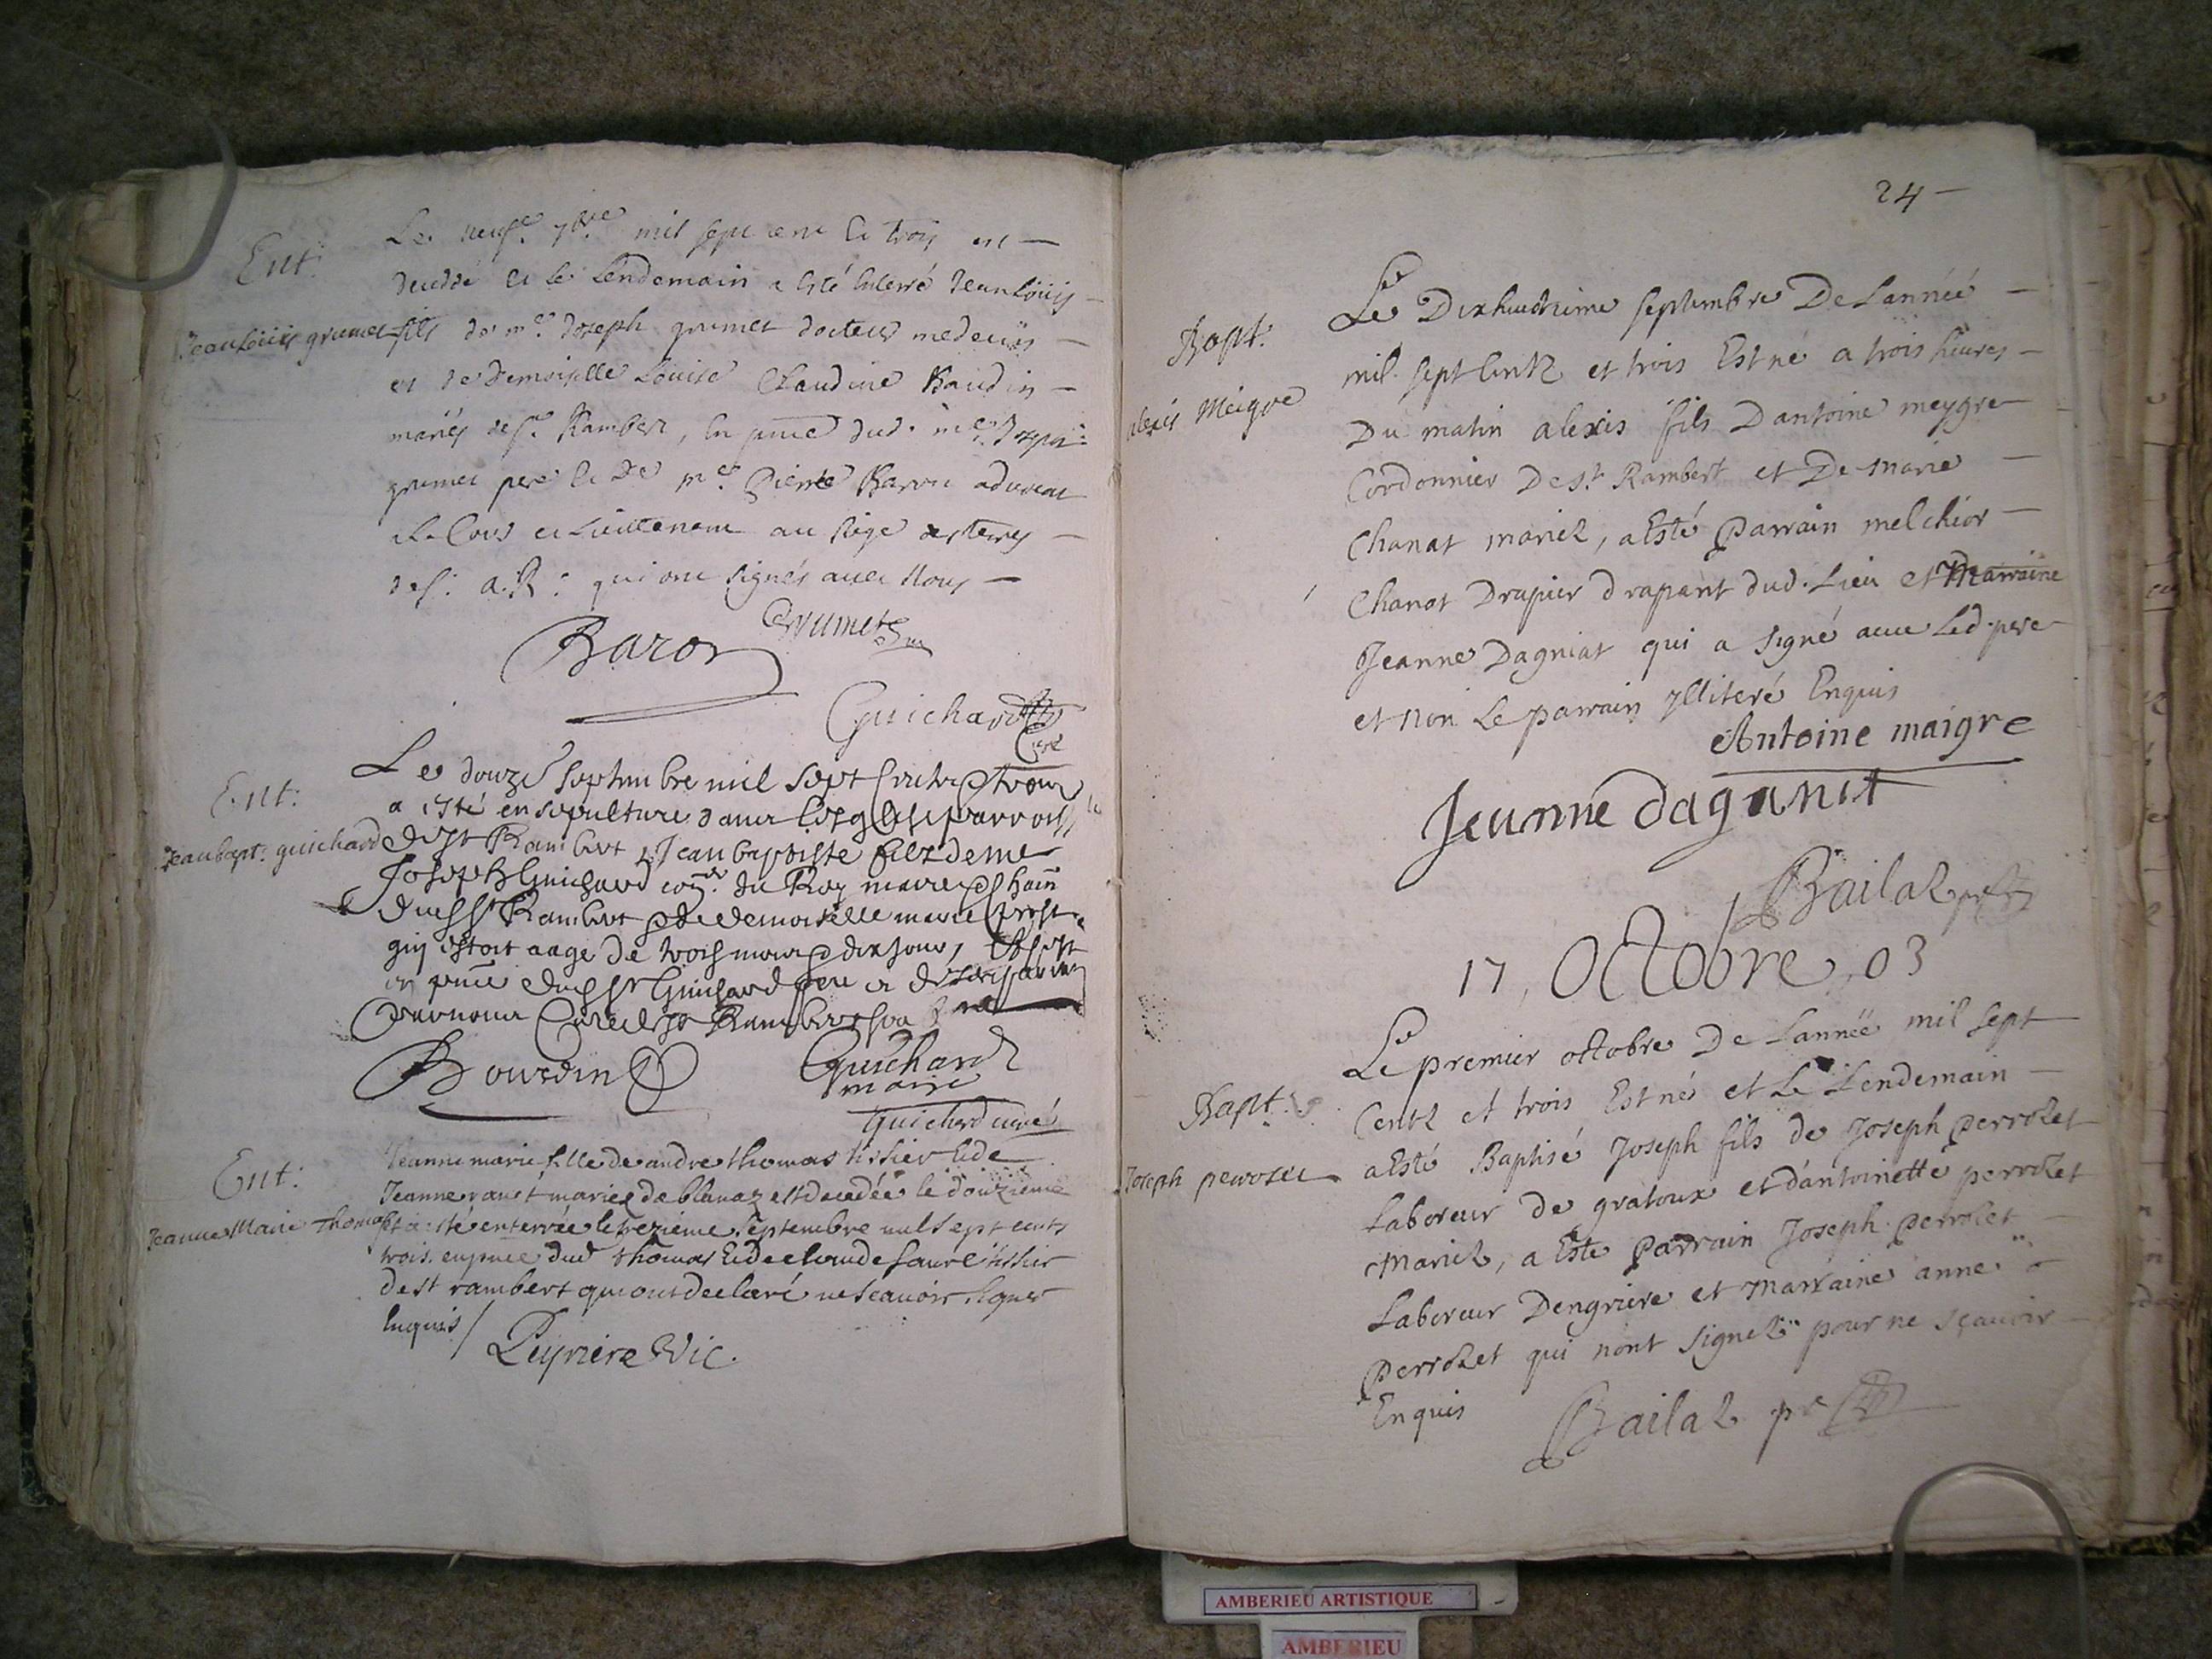 Ent:
Le neufe. 7bre. mil sept cent et trois est
decedé et le lendemain a esté enterré Jean Loüis
Jean Loüis grumet
fils de me. Joseph grumet docteur medecin
et de demoiselle Loüise Claudine Baudin
mariés de st. Rambert, en pnce dud. me. Joseph
grumet pere et de me. Pierre Baron advocat
a la Cour et Lieutenant au siege des terres
de s. a. R. qui ont signés avec Nous
Grumet
Baron
Guichard
Curé
Ent:
Le douze septembre mil sept cents et trois
a esté ensepulturé dans lesglise parroissi
Jean bapt: guichard
de st Rambert Jean baptiste filz de me
Joseph Guichard conr. du Roy maire
dud st Rambert et de demoiselle marie
quj estoit aagé de trois mois et dix jours,
en pnce dud sr Guichard pere et de
Curé de st Rambert
Bourdin
Guichard
maire
Guichard curé
Ent:
Jeanne marie fille de andre thomas tissier et de
Jeanne mariez de blanaz est decedée le douzième
Jeanne Marie Thomas
et a esté enterrée le trezième septembre mil sept cents
trois. en pnce dud thomas et de claude faure tissier
de st rambert qui ont declaré ne scauoir signer
enquis /
Peyriere Vic.
24
Bapt.
Le Dixhuictieme septembre De Lannéé
mil sept Centz et trois Est né a trois heures
Alexis Meigre
Du matin alexis fils Dantoine meygre
Cordonnier De st. Rambert et De marie
Chanat mariez, a Esté Parrain melchior
Chanat Drapier drapant dud. Lieu et Marraine
Jeanne Dagniat qui a signé avec Led. pere
et non Le parrain ylliteré Enquis
Antoine maigre
Jeanne daganit
Bailaz
17, Octobre, 03
Bapt.
Le premier octobre De Lannéé mil sept
Centz et trois Est né et Le Lendemain
Joseph perrozet
a Esté Baptisé Joseph fils de Joseph perrozet
Laboreur de gratoux et dantoinette perrozet
Mariez, a Esté parrain Joseph perrozet
Laboreur Dengriere et Marraine anne
perrozet qui nont signez pour ne sçavoir
Enquis
Bailaz
AMBERIEU ARTISTIQUE
AMBERIEU